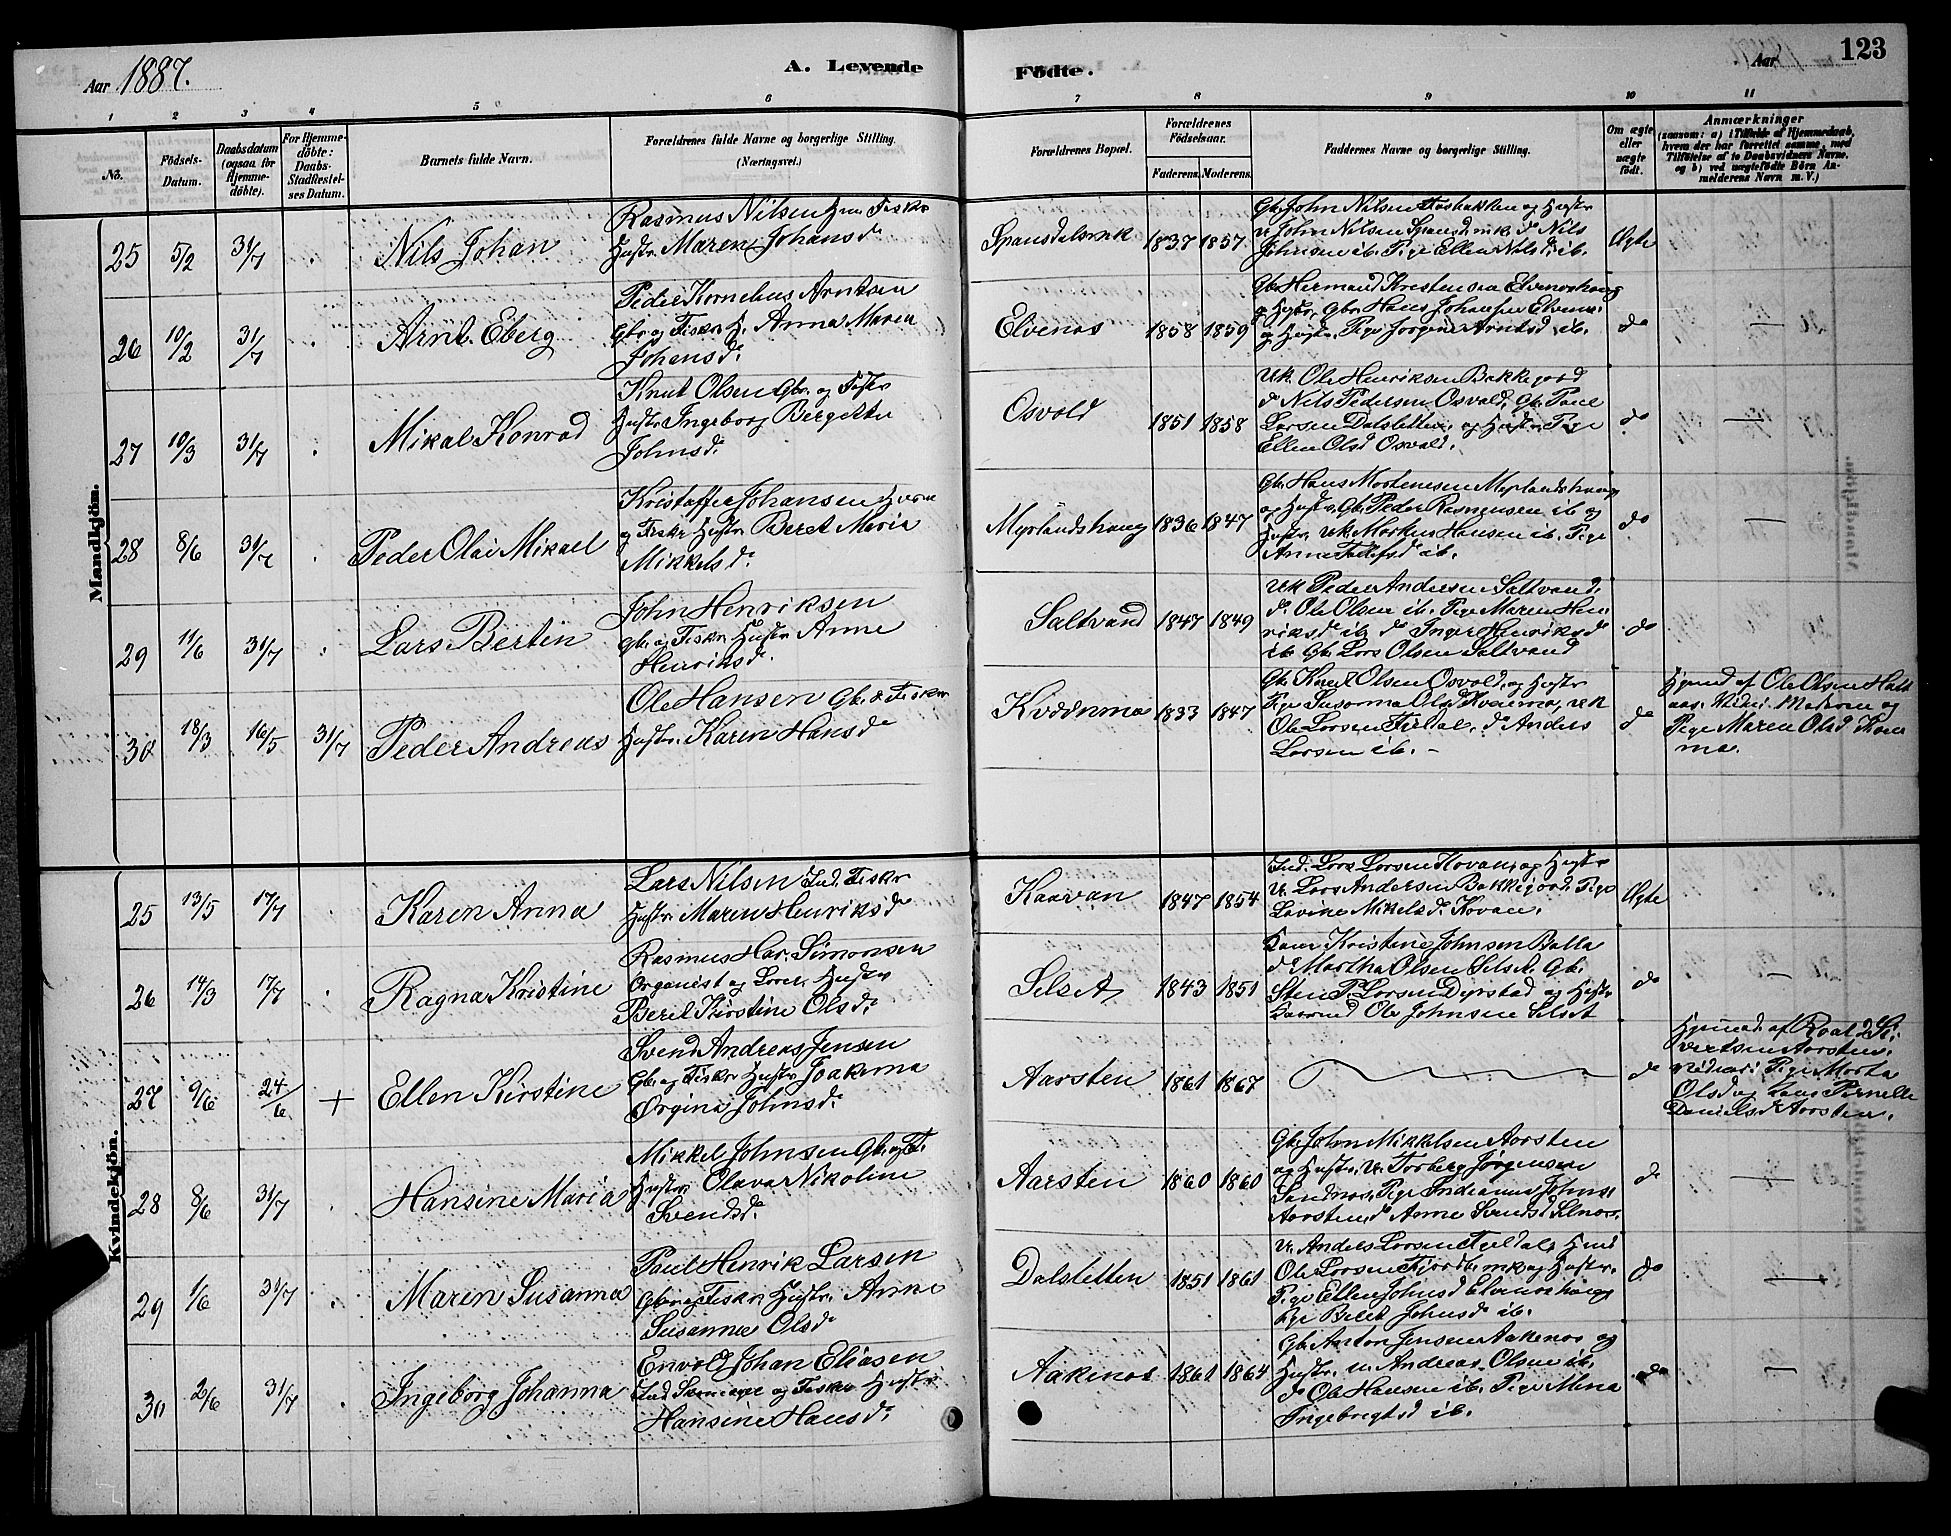 Aar 1887.
A. Levende Födte.
Aar
123
1 2 3 4 5 6 7 8 9 10 11
No.
Födsels-
Datum.
Daabsdatum
(ogsaa for
Hjemme-
döbte).
For Hjemme-
döbte:
Daabs-
Stadfæstel-
ses Datum.
Barnets fulde Navn.
Forældrenes fulde Navne og borgerlige Stilling.
(Næringsvei.)
Forældrenes Bopæl.
Forældrenes
Födselsaar.
Faderens. Moderens.
Faddernes Navne og borgerlige Stilling.
Om ægte
eller
uægte
födt.
Anmærkninger
(saasom: a) i Tilfælde af Hjemmedaab,
hvem der har forrettet samme, med
Tilföielse af to Daabsvidners Navne,
og b) ved uægtefödte Börn An-
melderens Navn m. V.)
Mandkjön.
25 5/2 31/7 Nils Johan
Rasmus Nilsen Fisker
Hustr. Maren Johansd.
Spansdalsmk 1837 1857
Gbr John Nilsen Fosbakken og Hustr
John Nilsen Spansdmk do Nils
Johnsen ib. Pige Ellen Nilsd. ib.
Ægte
26 10/2 31/7 Arnt Eberg
Peder Kornelius Arntsen
Gbr og Fiskr H. Anna Maren
Johansd.
Elvenæs 1858 1859
Gbr Hermand Kristensen Elveneshaug
og Hustr, Gbr. Hans Johansen Elvenes
og Hustr. Pige Jorgine Arntsd ib.
do
27 10/3 31/7 Mikal Konrad
Knut Olsen Gbr. og Fiskr
Hustr Ingeborg Bergitte
Johnsd.
Osvold 1851 1858
Uk. Ole Henriksen Bakkegaard
do Nils Pedersen Osvold, Gbr Paul
Larsen Dalsletten og Hustr. Pige
Ellen Olsd Osvold.
do
28 8/6 31/7 Peder Olai Mikael
Kristoffer Johansen
og Fiskr Hustr Beret Maria
Mikkelsd.
Myrlandshaug 1836 1847
Gbr Hans Mortensen Myrlandshaug
og Hustr, Gbr Peder Rasmussen ib og
Hustr, Uk Markus Hansen ib. Pige
Anne ib.
do
29 11/6 31/7 Lars Bertin
John Henriksen
Gbr og Fiskr Hustr Anne
Henriksd.
Saltvand 1847 1849
Uk Peder Andersen Saltvand,
do Ole Olsen ib. Pige Maren Hen
riksd ib do Inger Henriksd
ib Gbr Lars Olsen Saltvand
do
30 18/3 16/5 31/7 Peder Andreas
Ole Hansen Gbr. & Fisker
Hustr. Karen Hansd
Kværnmo 1833 1847
Gbr Knut Olsen Osvold, og Hustr
Pige Susanna Olsd Kvernmo, Uk
Ole Larsen do Anders
Larsen ib.
do
Hjemd af Ole Olsen
Madsen og
Pige Maren Olsd
mo.
Kvindekjön.
25 13/5 17/7 Karen Anna
Lars Nilsen Ind. Fiskr
Hustr Maren Henriksd
Kaavan 1847 1854
Ind. Lars Larsen Kovan, og Hustr
U. Lars Andersen Bakkegaard. Pige
Lovine Mikelsd. Kovan.
Ægte
26 14/3 17/7 Ragna Kristine
Rasmus Simonsen
Organist og Hustr
Beril Kirstine Olsd.
Selset 1843 1851
Kone Kristine Johnsen Balla
do Martha Olsen Selset. Gbr.
Sten P. Larsen Dyrstad og Hustr
Ole Johnsen Selset
do
27 9/6 24/6 + Ellen Kirstine
Svend Andreas Jensen
Gbr. og Fiskr Hustr Joakima
Ørgina Johnsd.
Aarsten 1861 1867
do
Hjemd. af Roald Si
vertsen Aarsten.
Pige Marta
Olsd og Kone Pernelle
Danielsd Aarsten.
28 8/6 31/7 Hansine Maria
Mikkel Johnsen Gbr. og F.
Hustr. Olava Nikoline
Svendsd.
Aarsten 1860 1860
Gbr John Mikkelsen Aarsten
og Hustr. U. Torberg Jørgensen
Sandnæs, Pige Indianna Johnsd
Aarsten, do Anne Svendsd Selnæs.
do
29 1/6 31/7 Maren Susanna
Paul Henrik Larsen
Gbr og Fiskr Hustr. Anne
Susanna Olsd
Dalsletten 1851 1861
U. Anders Larsen
Ole Larsen og Hustr.
Pige Ellen Johnsd Elveneshaug
Pige Beret Johnsd ib.
do
30 2/6 31/7 Ingeborg Johanna
Envold Johan Eliasen
Ind og Fiskr Hustr
Hansine Hansd.
Aakenæs 1861 1864
Gbr. Anton Jensen Aakenæs og
Hustr. U. Andreas Olsen ib.
do Ole Hansen ib. Pige Mina
Ingebregtsd ib.
do